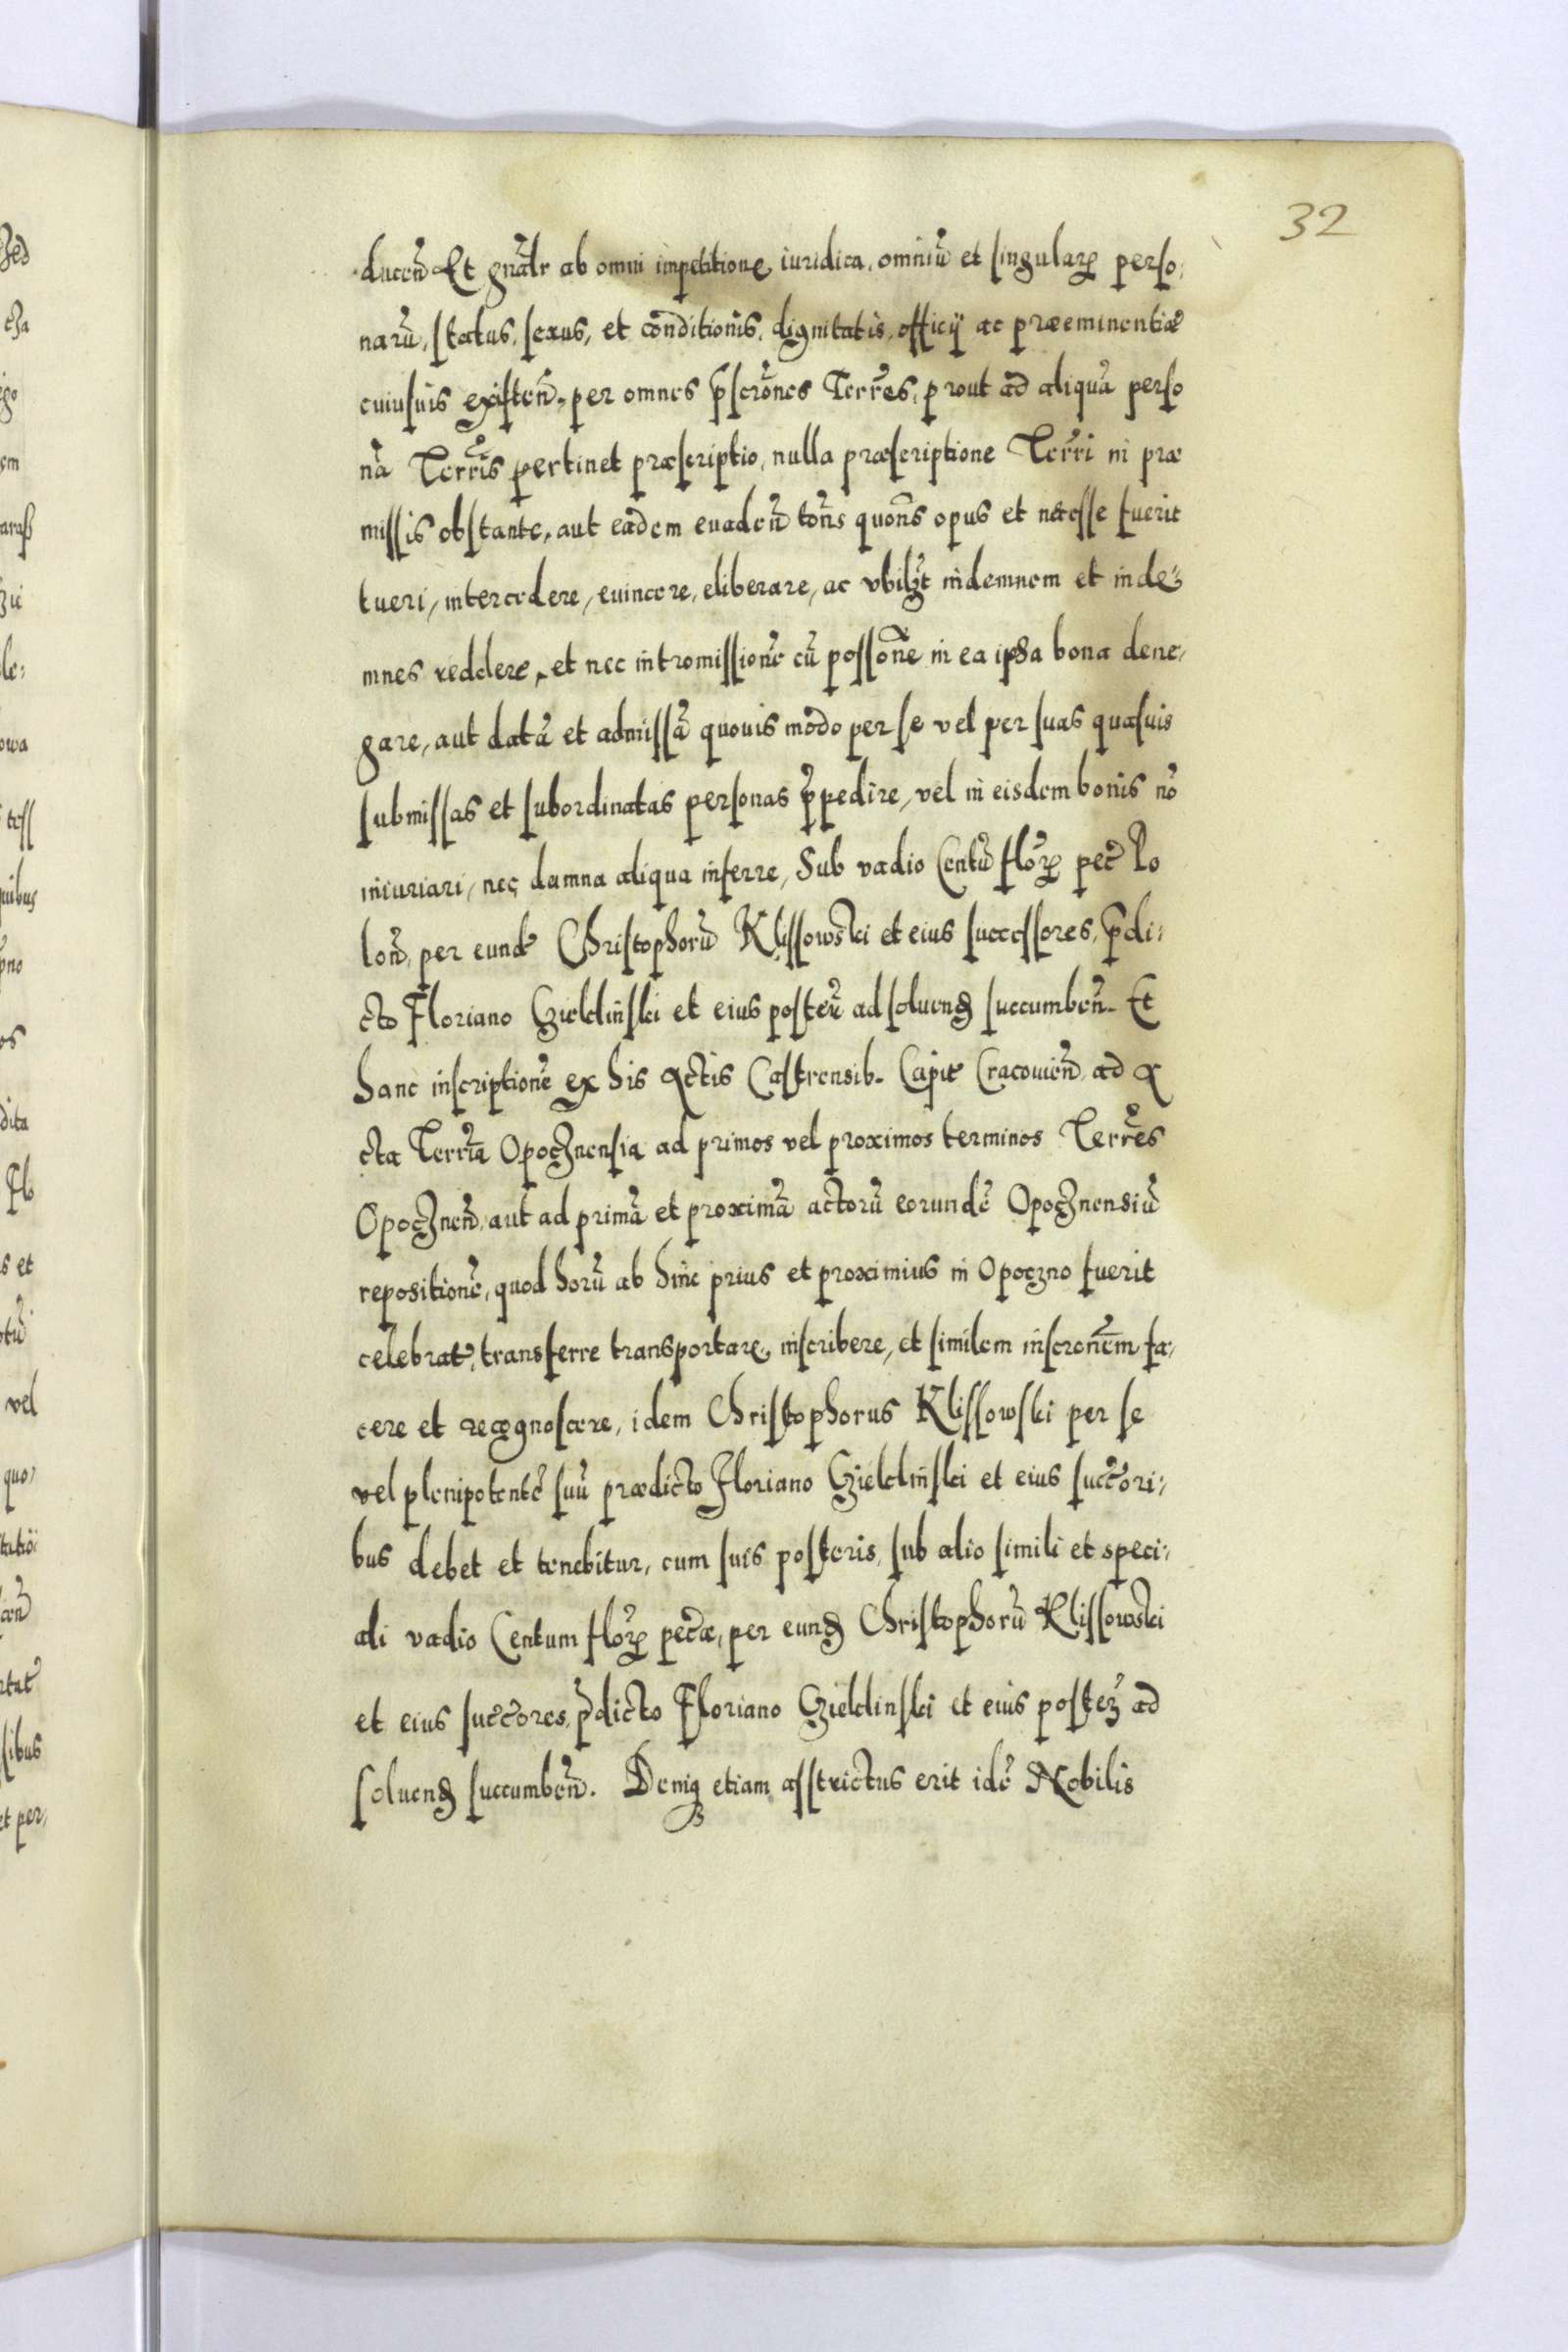 32
ducen̄ Et gn̄alr ab omni impetitione iuridica, omniū et singularꝝ perso,
narū, status, sexus, et conditionis, dignitatis, officÿ ac præeminentiæ
cuiusuis existen̄, per omnes p̄scrōnes Terr̄es, prout ad aliquā perso
nā Terr̄is pertinet præscriptio, nulla præscriptione Terr̄i in præ
missis obstante, aut eadem euaden̄ tōns quōns opus et necesse fuerit
tueri, intercedere, euincere, eliberare, ac vbilꝫt indemnem et inde:
mnes reddere, et nec intromissionē cū possōne in ea ipsa bona dene,
gare, aut datā et admissā quouis modo per se vel per suas quasuis
submissas et subordinatas personas p̄pedire, vel in eisdem bonis nō
iniuriari, nec damna aliqua inferre, Sub vadio Centū flōꝝ pec̄ Po
lon̄, per eundē Christophorū Klissowski et eius successores, p̄di:
cto Floriano Gieldinski et eius poster̄ ad soluenđ succumben̄. Et
hanc inscriptionē ex his Actis Castrensib. Capit̄ Cracouien̄, ad A
cta Terrīa Opocznensia ad primos vel proximos terminos Terr̄es
Opocznen̄, aut ad primā et proximā actorū eorundē Opocznensiū
repositionē, quod horū ab hinc prius et proximius in Opoczno fuerit
celebrat̄, transferre transportare, inscribere, et similem inscronēm fa,
cere et recognoscere, idem Christophorus Klissowski per se
vel plenipotentē suū prædicto Floriano Gieldinski et eius succ̄ori:
bus debet et tenebitur, cum suis posteris, sub alio simili et speci:
ali vadio Centum flōꝝ pec̄æ, per eunđ Christophorū Klissowski
et eius succ̄ores, p̄dicto Floriano Gieldinski et eius posteꝝ ad
soluenđ succumben̄. Deniqꝫ etiam asstrictus erit idē Nobilis